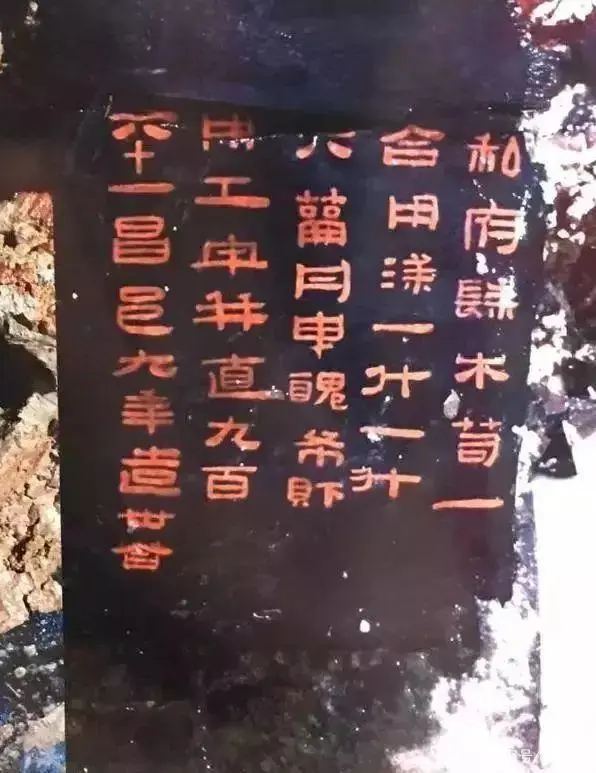 私府髹木笥一
合用漆一斗一升
六籥丹臾醜布財
用工牢并直九百
六十一昌邑九年造廿合